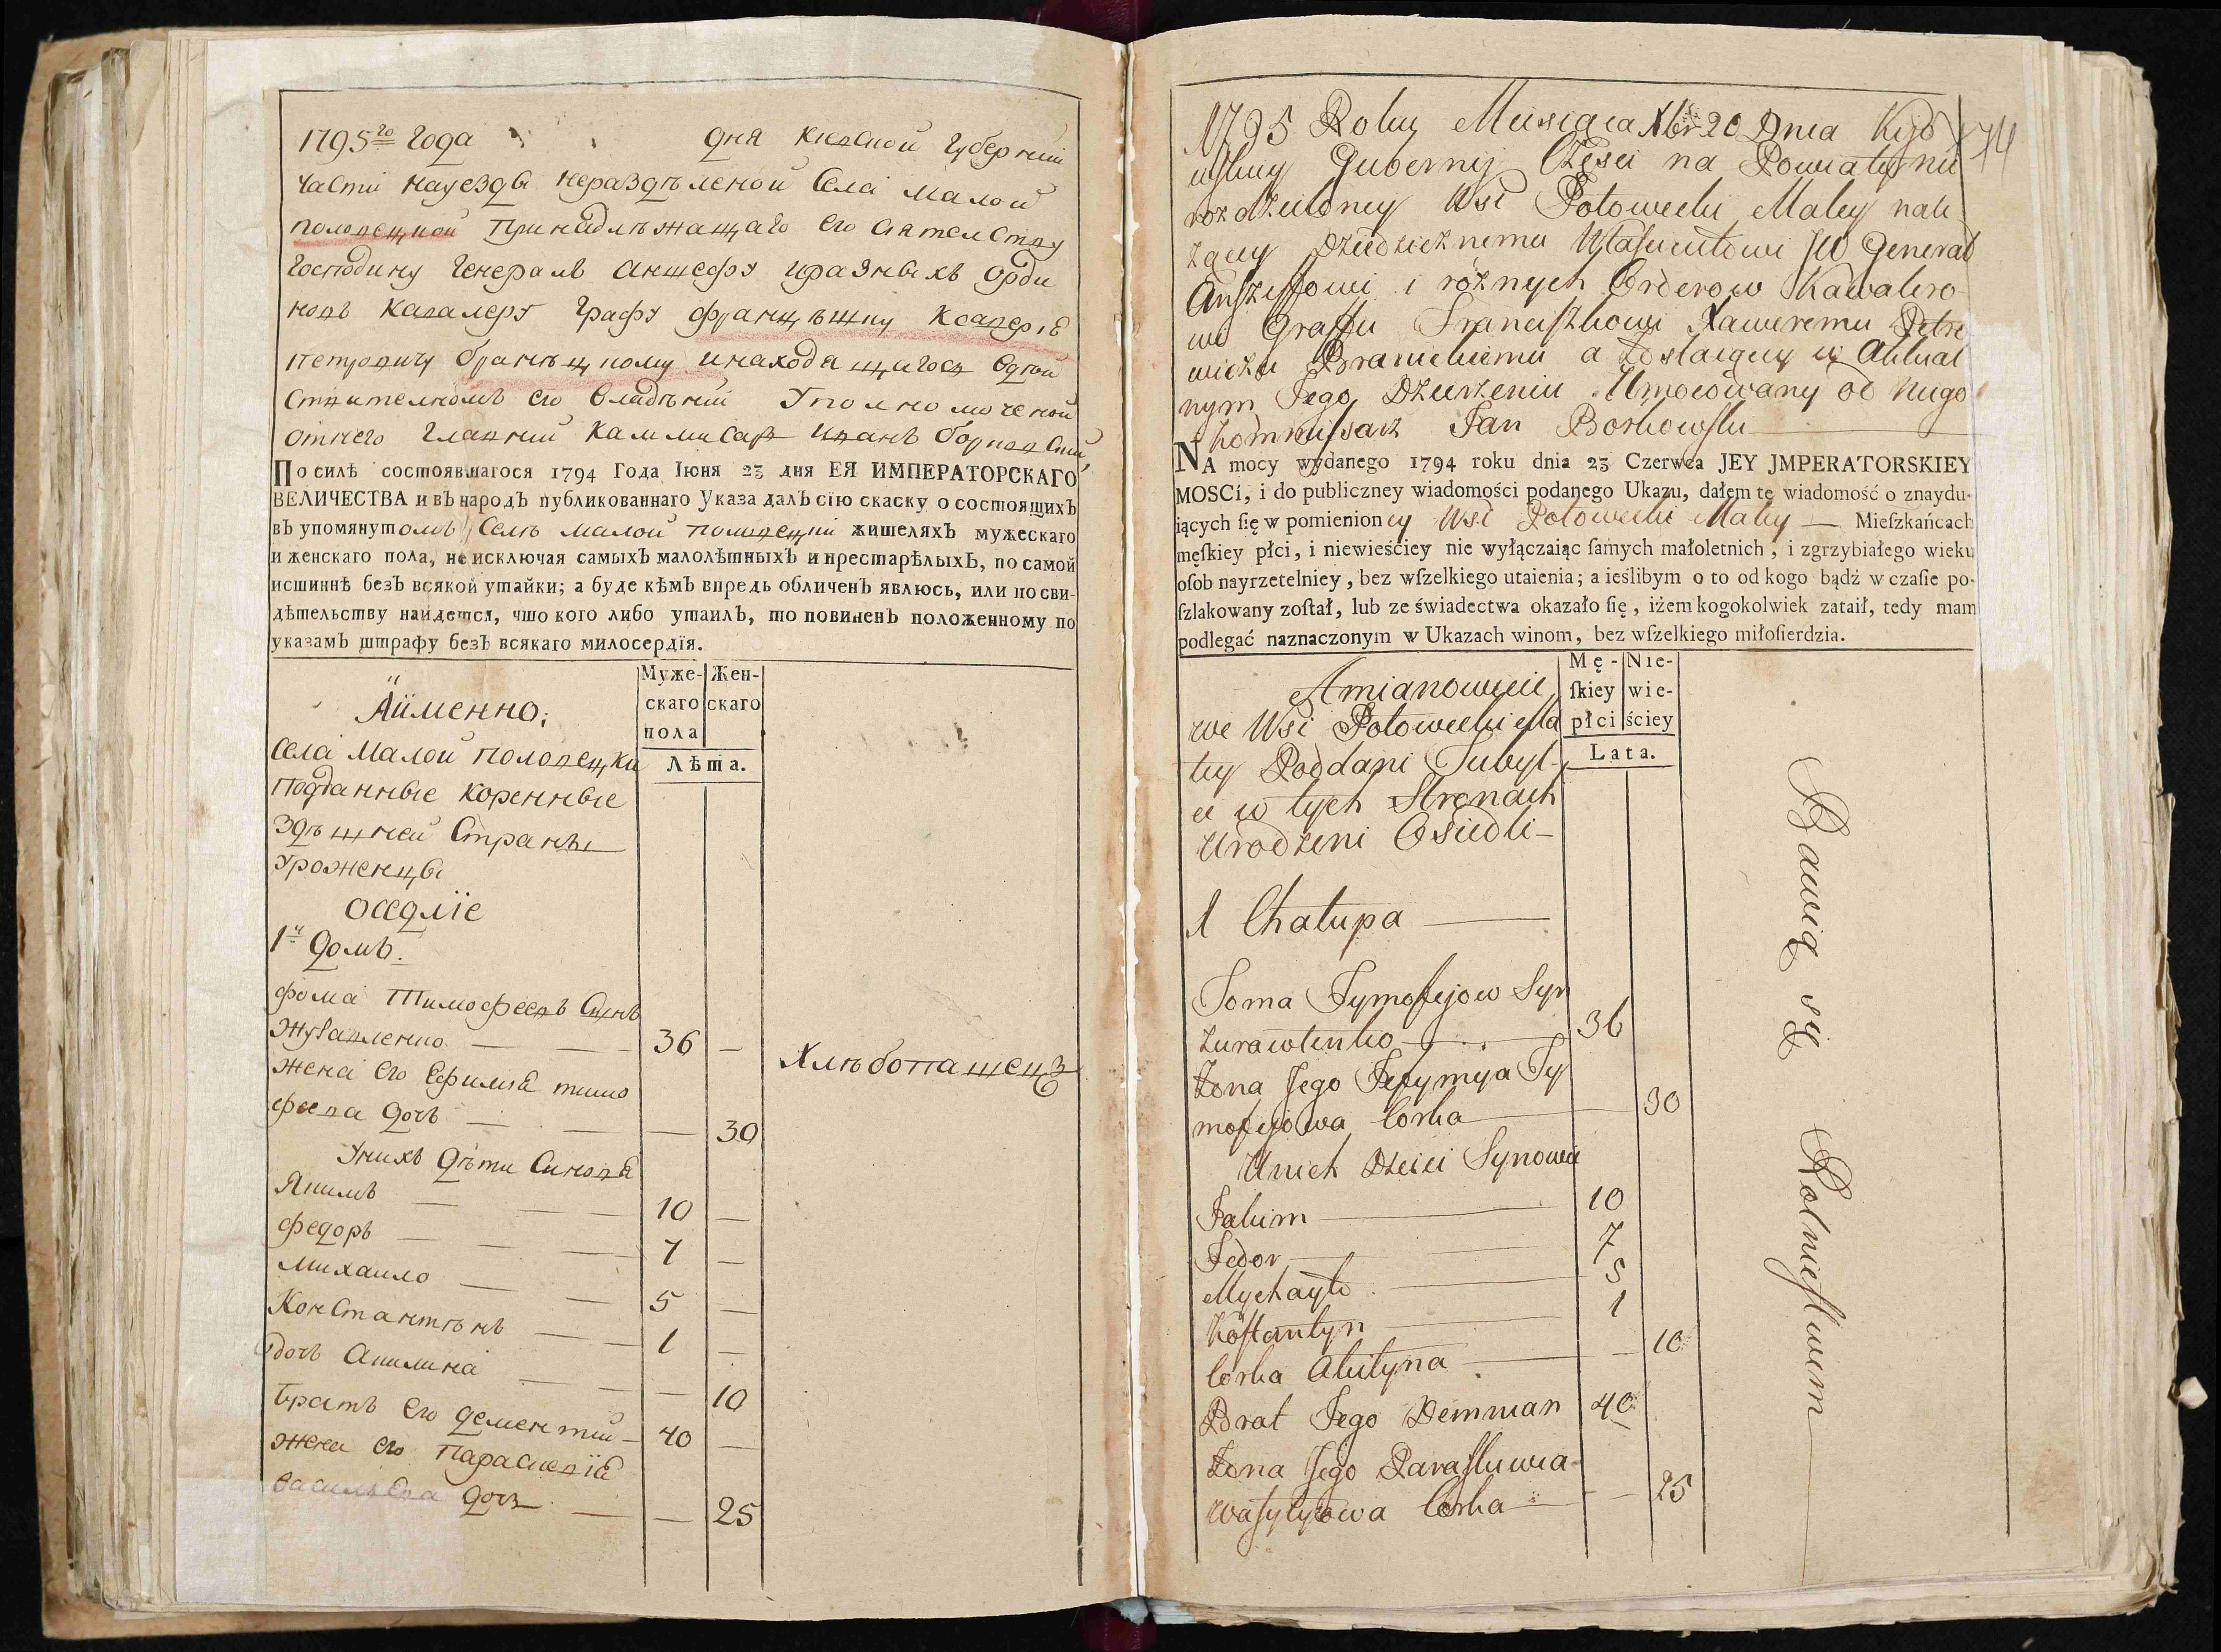 1795го года дня Киевской губернии
части науезды нераздѣленой села Малой
Половецкой принадлѣжащаго его сиятелству
господину генералъ аншефу иразныхъ орди
новъ кавалеру графу Францѣшку Ксаверiю
Петровичу Бранѣцкому инаходящагося вдѣй
ствителномъ его владѣнiи Уполномоченой
отнего главнiй каммисаръ Иванъ Борковский
По силѣ состоявшагося 1794 Года Iюня 23 дня ЕЯ ИМПЕРАТОРСКАГО
ВЕЛИЧЕСТВА и въ народъ публикованнаго Указа далъ сiю скаску о состоящихъ
въ упомянутомъ Селѣ малой половецки жителяхъ мужескаго
и женскаго пола, не исключая самыхъ малолѣтныхъ и престарѣлыхъ, по самой
истиннѣ безъ всякой утайки; а буде кѣмъ впредь обличенъ явлюсь, или по сви-
дѣтельству найдется, что кого либо утаилъ, то повиненъ положенному по
указамъ штрафу безъ всякаго милосердiя.
Муже-скаго пола Жен-скаго
Лѣта.
Аименно;
села Малой половецки
подданные коренные
здѣшней страны
уроженцы
оседлiе
1й домъ.
Фома Тимофеевъ сынъ
Журавленко — 36 —
жена его Ефимiя тимо
феева дочь — — 30
Хлѣбопашецъ
Унихъ дѣти Синовя
Якимъ — 10 —
Федоръ — 7 —
Михаило — 5 —
Константѣнъ — 1 —
дочь Акилина — — 10
братъ его дементий — 40 —
жена его Параскевiя
васильева дочь — — 25
1795 Roku Miesiąca Xbr 20 Dnia Kijo
wskiey Gubernij Części na Powiaty nie
rozdzieloney Wsi Połowecki Małey nale
żącey Dziedzicznemu Właścicielowi JW General
Anszeffowi i różnych Orderow Kawalero
wi Graffu Franciszkowi Xaweremu Petro
wiczu Branickiemu a zostaiącey w Aktual
nym Jego Dzierżeniu Umocowany od niego
Kommissarz Jan Borkowski
NA mocy wydanego 1794 roku dnia 23 Czerwca JEY JMPERATORSKIEY
MOSCi, i do publiczney wiadomości podanego Ukazu, dałem tę wiadomość o znaydu-
iących ſię w pomienioney Wsi Połowecki Małey — Mieſzkańcach
męſkiey płci, i niewieściey nie wyłączaiąc ſamych małoletnich, i zgrzybiałego wieku
oſob nayrzetelniey, bez wſzelkiego utaienia; a ieślibym o to od kogo bądź w czaſie po-
ſzlakowany zoſtał, lub ze świadectwa okazało ſię, iżem kogokolwiek zataił, tedy mam
podlegać naznaczonym w Ukazach winom, bez wſzelkiego miłoſierdzia.
Mę-ſkiey płci Nie-wie-ściey
Lata.
Amianowicie
we Wsi Połowecki Ma
łey Poddani Tubyl-
ci w tych Stronach
Urodzeni Osiedli-
1 Chałupa —
Toma Tymofiejow Syn
Zurawlenko — 36
Zona Jego Jefymya Ty
mofiejowa Corka — 30
Unich Dzieci Synowie
Jakim — 10
Fedor — 7
Mychayło — 5
Kostantyn — 1
Corka Akilyna — 10
Brat Jego Demian 40
Zona Jego Paraskiwia
Wasylijowa Corka — 25
Bawią się Rolnictwem